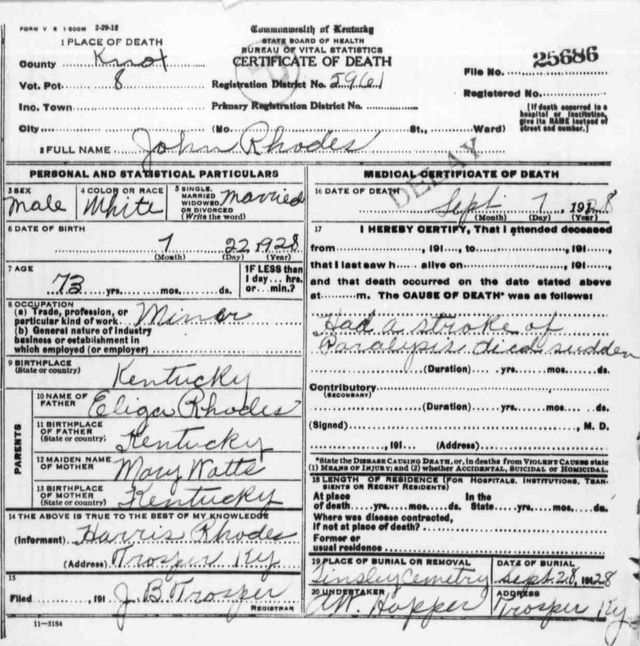 FORM V S 1 500M 2-29-12
Commonwealth of Kentucky
STATE BOARD OF HEALTH
BUREAU OF VITAL STATISTICS
CERTIFICATE OF DEATH
1 PLACE OF DEATH
County Knox
Vot. Pct. 8
Registration District No. 5961
File No. 25686
Inc. Town
Primary Registration District No.
Registered No.
City (No. St., Ward)
[If death occurred in a
hospital or institution,
give its NAME instead of
street and number.]
2 FULL NAME John Rhodes
DELAY
PERSONAL AND STATISTICAL PARTICULARS
3 SEX
Male
4 COLOR OR RACE
White
5 SINGLE,
MARRIED
WIDOWED
OR DIVORCED
(Write the word)
Married
6 DATE OF BIRTH
7 22 1928
(Month) (Day) (Year)
7 AGE
73 yrs. mos. ds.
If LESS than
1 day... hrs.
or... min.?
8 OCCUPATION
(a) Trade, profession, or
particular kind of work Miner
(b) General nature of industry
business or establishment in
which employed (or employer)
9 BIRTHPLACE
(State or country) Kentucky
PARENTS
10 NAME OF
FATHER Eliga Rhodes
11 BIRTHPLACE
OF FATHER
(State or country) Kentucky
12 MAIDEN NAME
OF MOTHER Mary Watts
13 BIRTHPLACE
OF MOTHER
(State or country) Kentucky
14 THE ABOVE IS TRUE TO THE BEST OF MY KNOWLEDGE
(Informant) Harris Rhodes
(Address) Trosper Ky
15
Filed , 191 J. B. Trosper
REGISTRAR
11-3184
MEDICAL CERTIFICATE OF DEATH
16 DATE OF DEATH
Sept 7, 1928
(Month) (Day) (Year)
17 I HEREBY CERTIFY, That I attended deceased
from , 191 , to , 191 ,
that I last saw h alive on , 191 ,
and that death occurred on the date stated above
at m. The CAUSE OF DEATH* was as follows:
Had a stroke of
Paralysis died sudden
(Duration) yrs. mos. ds.
Contributory
(SECONDARY)
(Duration) yrs. mos. ds.
(Signed) , M. D.
, 191 (Address)
*State the DISEASE CAUSING DEATH, or, in deaths from VIOLENT CAUSES state
(1) MEANS OF INJURY; and (2) whether ACCIDENTAL, SUICIDAL or HOMICIDAL
18 LENGTH OF RESIDENCE (FOR HOSPITALS, INSTITUTIONS, TRAN-
SIENTS OR RECENT RESIDENTS)
At place
of death yrs. mos. ds.
In the
State yrs. mos. ds.
Where was disease contracted,
if not at place of death?
Former or
usual residence
19 PLACE OF BURIAL OR REMOVAL
Tinsley Cemetry
DATE OF BURIAL
Sept 28, 1928
20 UNDERTAKER
Hopper
ADDRESS
Trosper Ky